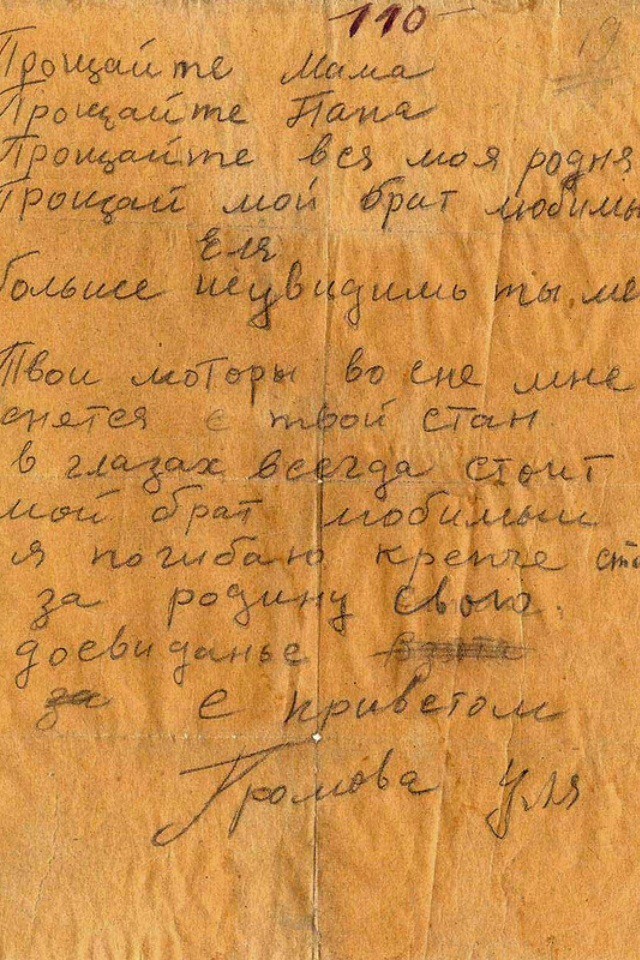 110
19
Прощайте Мама
Прощайте Папа
Прощайте вся моя родня
Прощай мой брат любимы
Еля
больше неувидишь ты ме
Твои моторы во сне мне
снется с твой стан
в глазах всегда стоит
мой брат любимый
я погибаю крепче сто
за родину свою.
досвиданье
за с приветом
Громова Уля